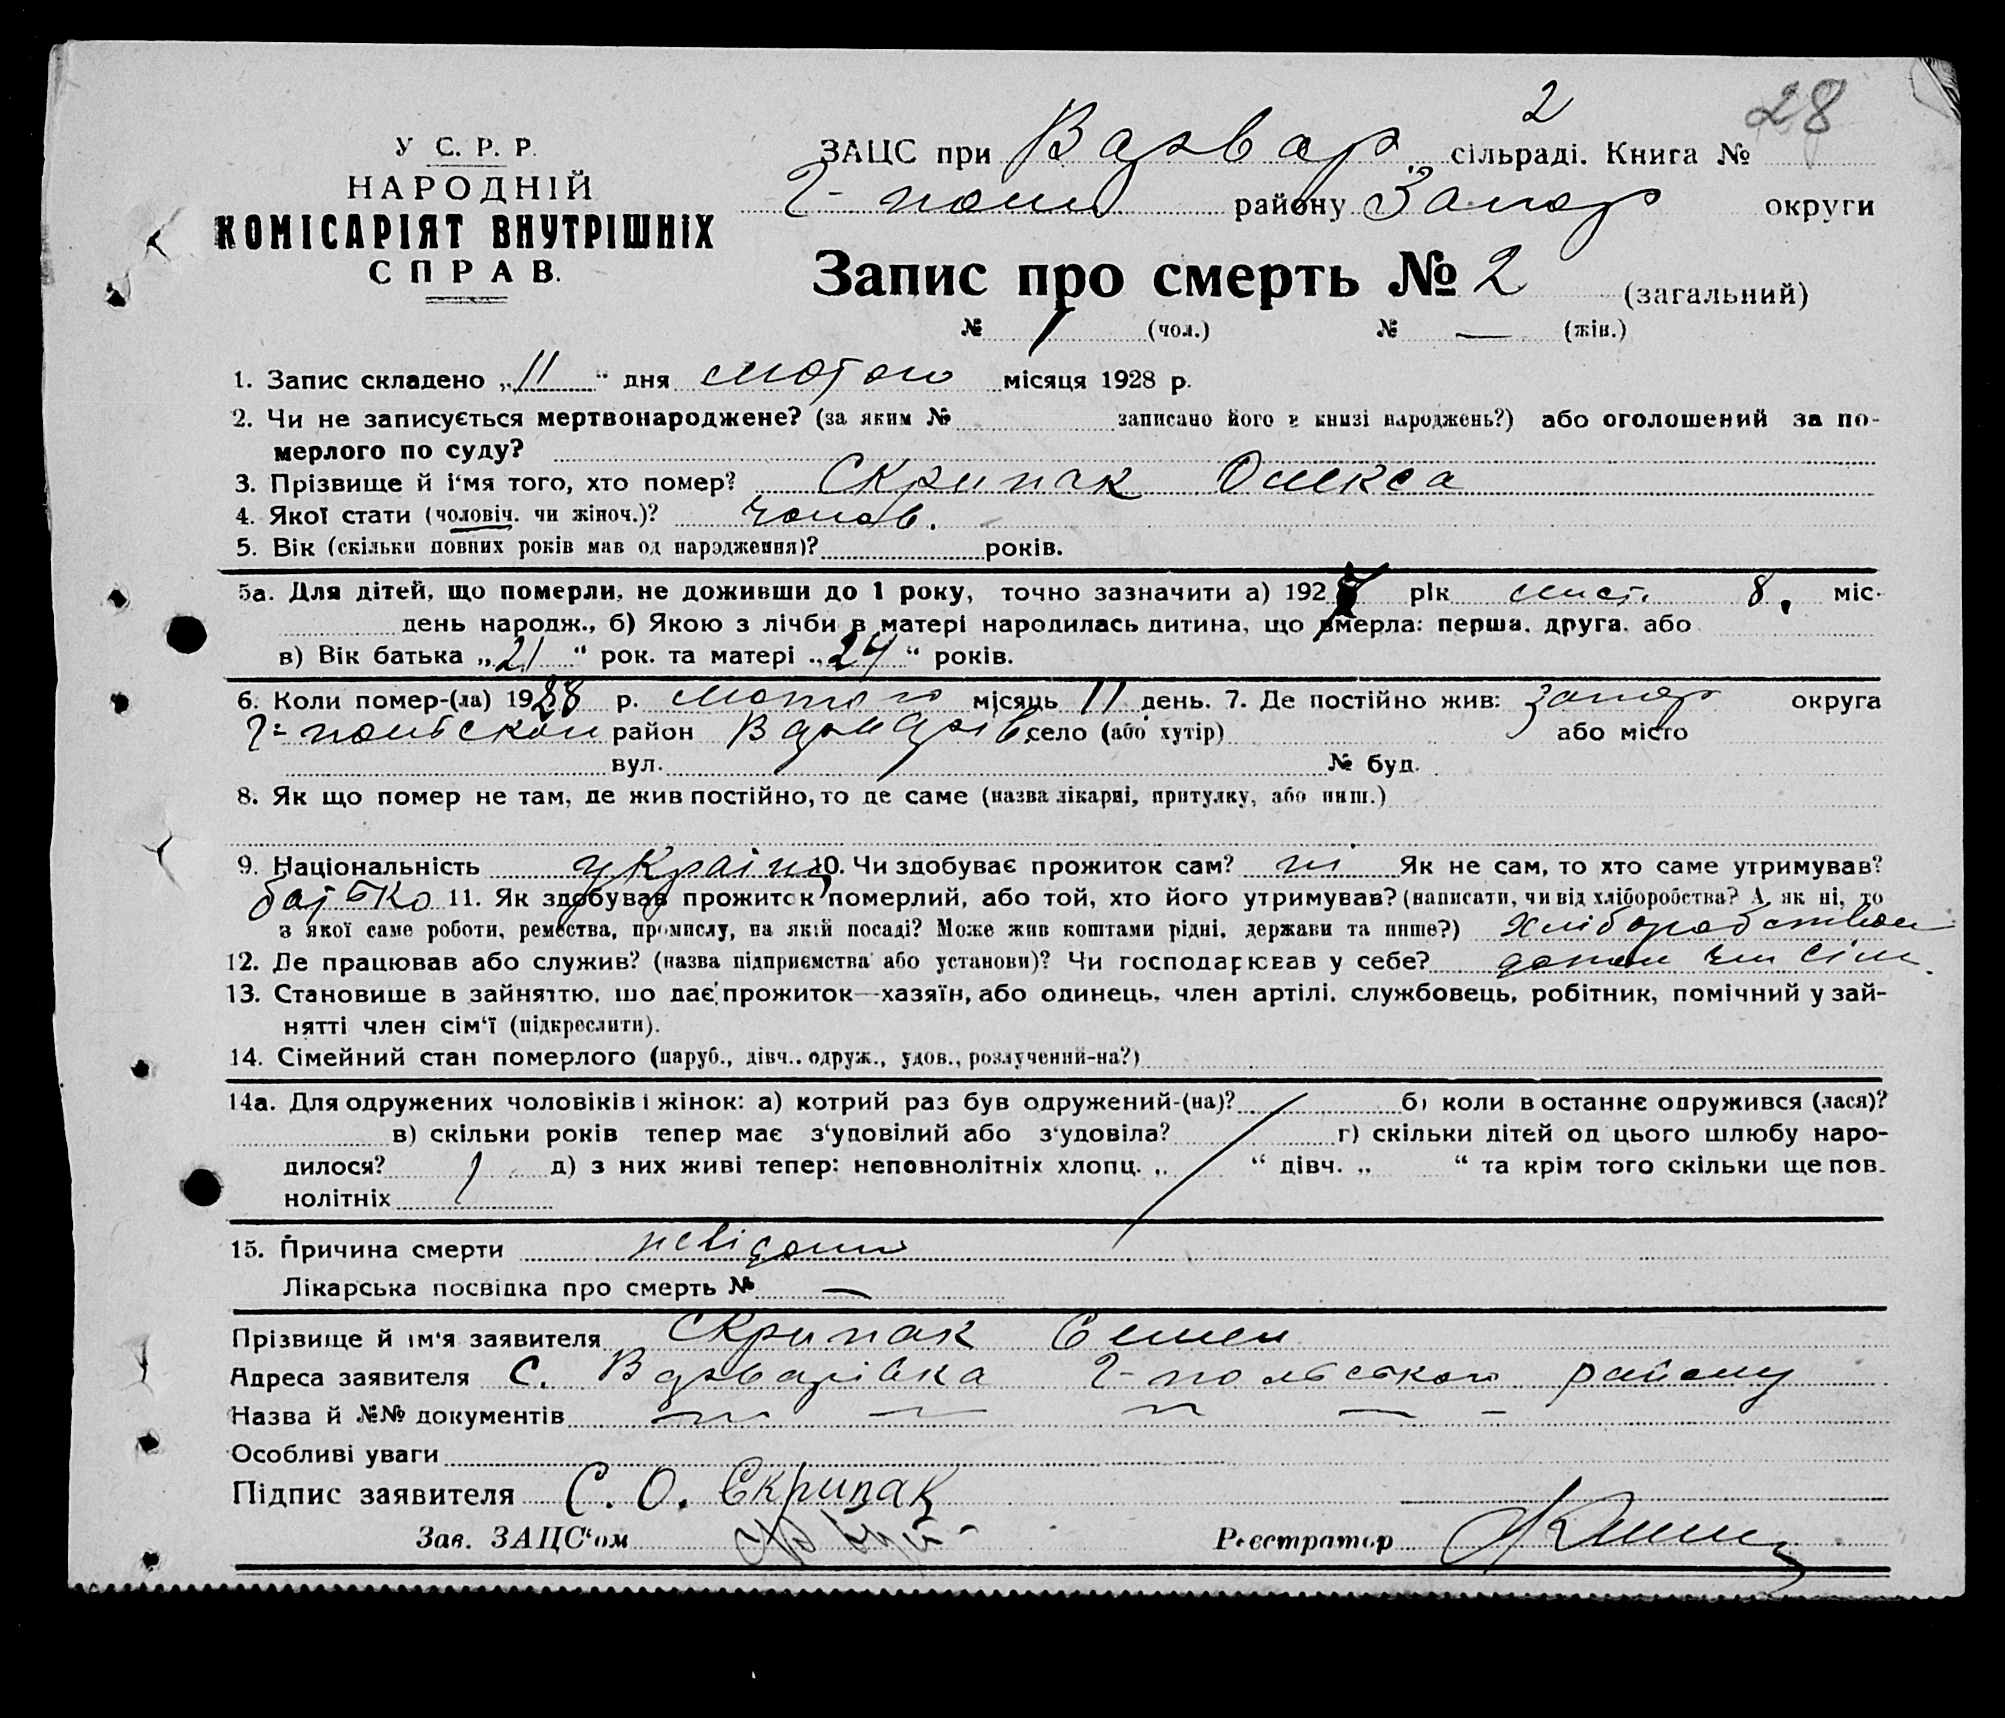 2
28
У С. Р. Р.
НАРОДНІЙ
КОМІСАРІЯТ ВНУТРІШНІХ
СПРАВ.
ЗАЦС при Варвар. сільраді. Книга №
Г- пош району Запор округи
Запис про смерть № 2 (загальний)
№ 1 (чол.) № — (жін.)
1. Запис складено „11“ дня лютого місяця 1928 р.
2. Чи не записується мертвонароджене? (за яким № записано його в книзі народжень?) або оголошений за по-
мерлого по суду?
3. Прізвище й і'мя того, хто помер? Скрипак Олекса
4. Якої стати (чоловіч. чи жіноч.)? чолов.
5. Вік (скільки повних років мав од народження)? років.
5а. Для дітей, що померли, не доживши до 1 року, точно зазначити а) 1927 рік лист. 8. міс-
день народж., б) Якою з лічби в матері народилась дитина, що вмерла: перша, друга, або
в) Вік батька „21“ рок. та матері „24“ років.
6. Коли помер-(ла) 1928 р. лютого місяць 11 день. 7. Де постійно жив: Запор округа
Г-польской район Варварів село (або хутір) або місто
вул. № буд.
8. Як що помер не там, де жив постійно, то де саме (назва лікарні, притулку, або инш.)
9. Національність україн 10. Чи здобуває прожиток сам? ні Як не сам, то хто саме утримував?
батько 11. Як здобував прожиток померлий, або той, хто його утримував? (написати, чи від хліборобства? А як ні, то
з якої саме роботи, ремества, промислу, на якій посаді? Може жив коштами рідні, держави та инше?) Хліборобством
12. Де працював або служив? (назва підприємства або установи)? Чи господарював у себе? допом чл сім.
13. Становище в зайняттю, що дає прожиток—хазяїн, або одинець, член артілі, службовець, робітник, помічний у зай-
нятті член сім'ї (підкреслити).
14. Сімейний стан померлого (паруб., дівч., одруж., удов., розлучений-на?)
14а. Для одружених чоловіків і жінок: а) котрий раз був одружений-(на)? б) коли востаннє одружився (лася)?
в) скільки років тепер має з'уповілий або з'удовіла? г) скільки дітей од цього шлюбу наро-
дилося? д) з них живі тепер: неповнолітніх хлопц. „ “ дівч. „ “ та крім того скільки ще пов-
нолітніх
15. Причина смерти невідома
Лікарська посвідка про смерть № —
Прізвище й ім'я заявителя Скрипак Семен
Адреса заявителя С. Варварівка Г-польского району
Назва й №№ документів — — — — —
Особливі уваги
Підпис заявителя С. О. Скрипак
Зав. ЗАЦС'ом Реєстратор